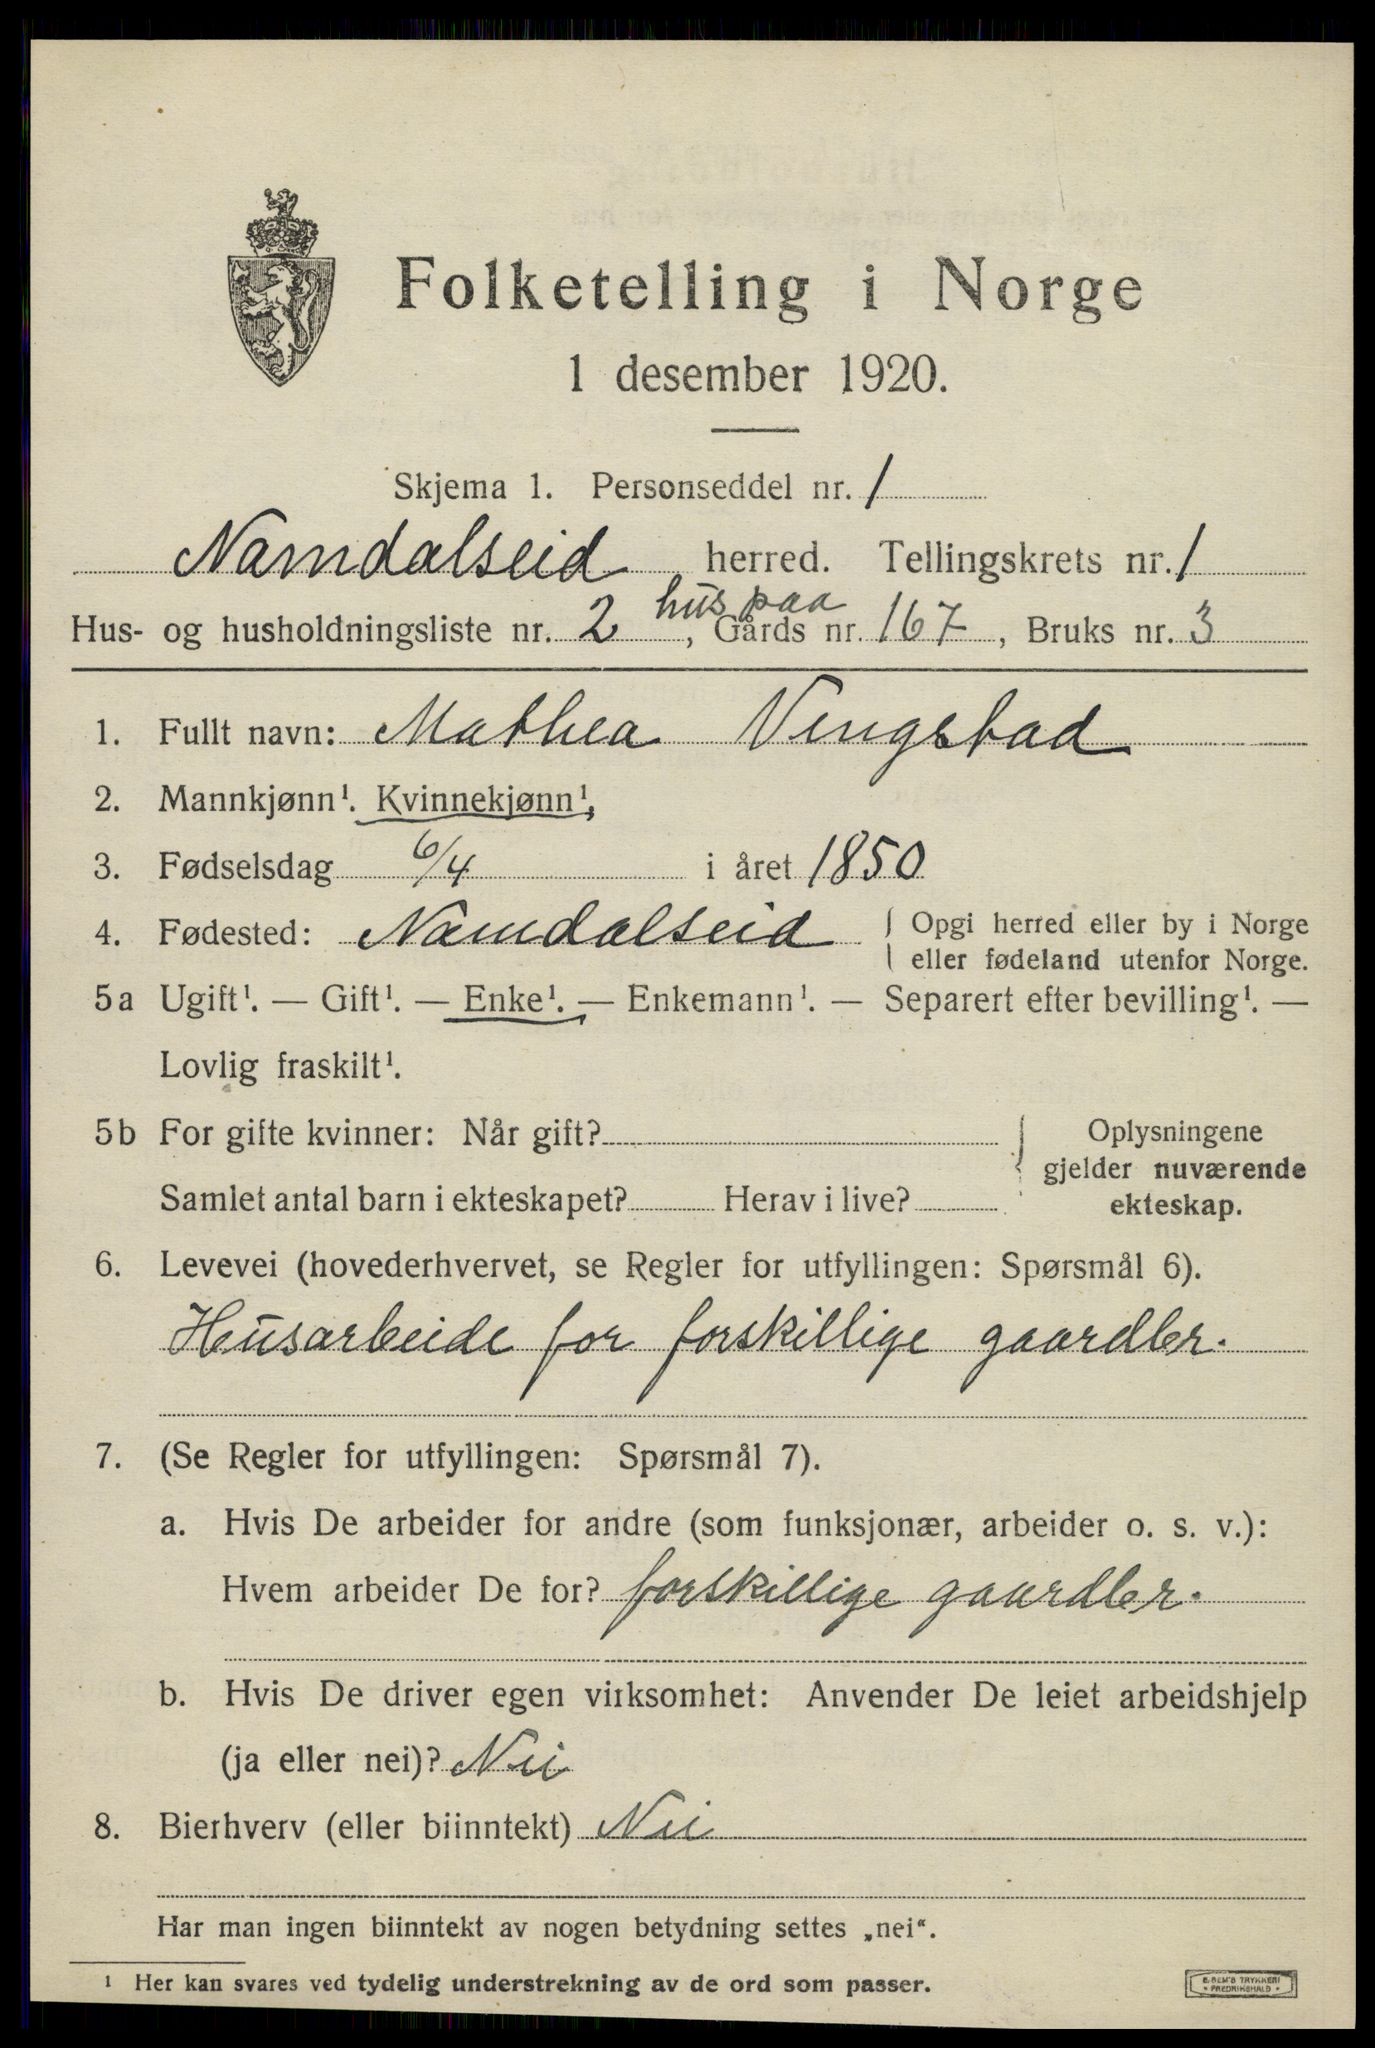 Folketelling i Norge
1 desember 1920.
Skjema 1. Personseddel nr. 1
Namdalseid herred. Tellingskrets nr. 1
hus paa
Hus- og husholdningsliste nr. 2, Gårds nr. 167, Bruks nr. 3
1. Fullt navn: Mathea Vengstad
2. Mannkjønn¹. Kvinnekjønn¹,
3. Fødselsdag 6/4 i året 1850
4. Fødested: Namdalseid { Opgi herred eller by i Norge
eller fødeland utenfor Norge.
5a Ugift¹. — Gift¹. — Enke¹. — Enkemann¹. — Separert efter bevilling¹. —
Lovlig fraskilt¹.
5b For gifte kvinner: Når gift? { Oplysningene
gjelder nuværende
Samlet antal barn i ekteskapet? Herav i live? ekteskap.
6. Levevei (hovederhvervet, se Regler for utfyllingen: Spørsmål 6).
Husarbeide for forskillige gaardler.
7. (Se Regler for utfyllingen: Spørsmål 7).
a. Hvis De arbeider for andre (som funksjonær, arbeider o. s. v.):
Hvem arbeider De for? forskillige gaardler.
b. Hvis De driver egen virksomhet: Anvender De leiet arbeidshjelp
(ja eller nei)? Nei
8. Bierhverv (eller biinntekt) Nei
Har man ingen biinntekt av nogen betydning settes „nei“.
¹ Her kan svares ved tydelig understrekning av de ord som passer.
E. SEM'S TRYKKERI
• FREDRIKSHALD •